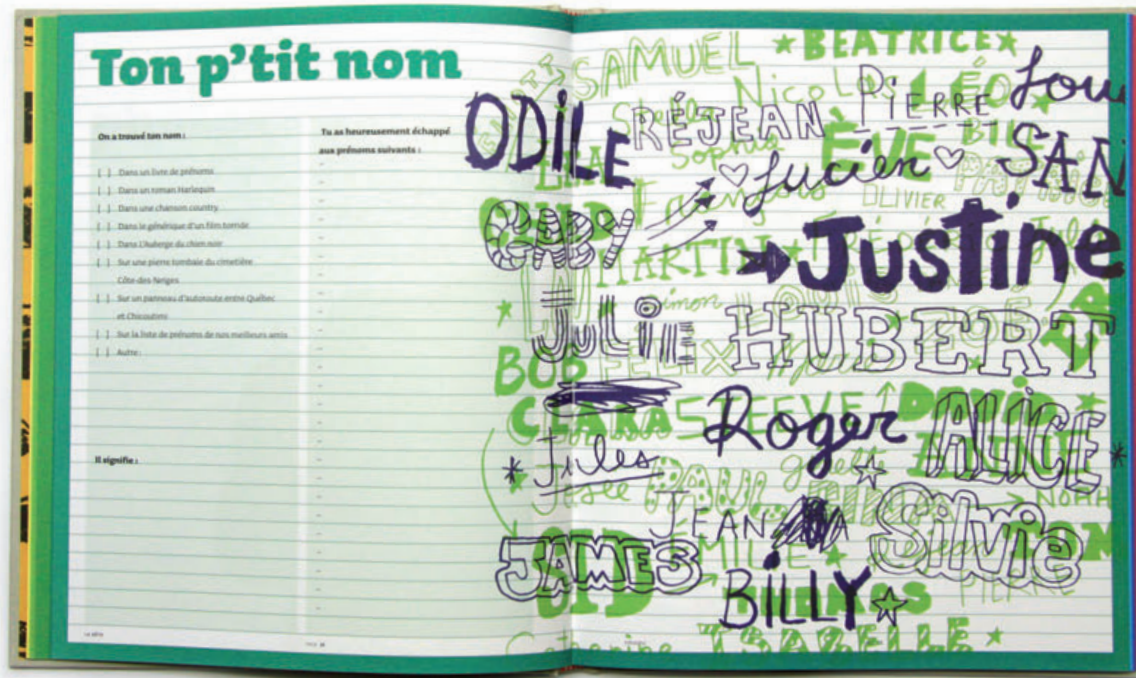 Ton p'tit nom
On a trouvé ton nom :
[ ] Dans un livre de prénoms
[ ] Dans un roman Harlequin
[ ] Dans une chanson country
[ ] Dans le générique d'un film torride
[ ] Dans L'Auberge du chien noir
[ ] Sur une pierre tombale du cimetière
Côte-des-Neiges
[ ] Sur un panneau d'autoroute entre Québec
et Chicoutimi
[ ] Sur la liste de prénoms de nos meilleurs amis
[ ] Autre :
Il signifie :
Tu as heureusement échappé
aux prénoms suivants :
SAMUEL
★BÉATRICE★
Nicolas
LÉO
PIERRE
ODILE
RÉJEAN
Sophie
ÈVE
BILL
SAN
Lucien
François
OLIVIER
GABY
MARTIN
Justine
Simon
JULIE
HUBERT
BOB
FÉLIX
CLARA
STEEVE
Roger
DAVID
ALICE
Jules
Josée
PAUL
JEAN
Silvie
JAMES
ÉMILIE
BILLY
PIERRE
Catherine
ISABELLE